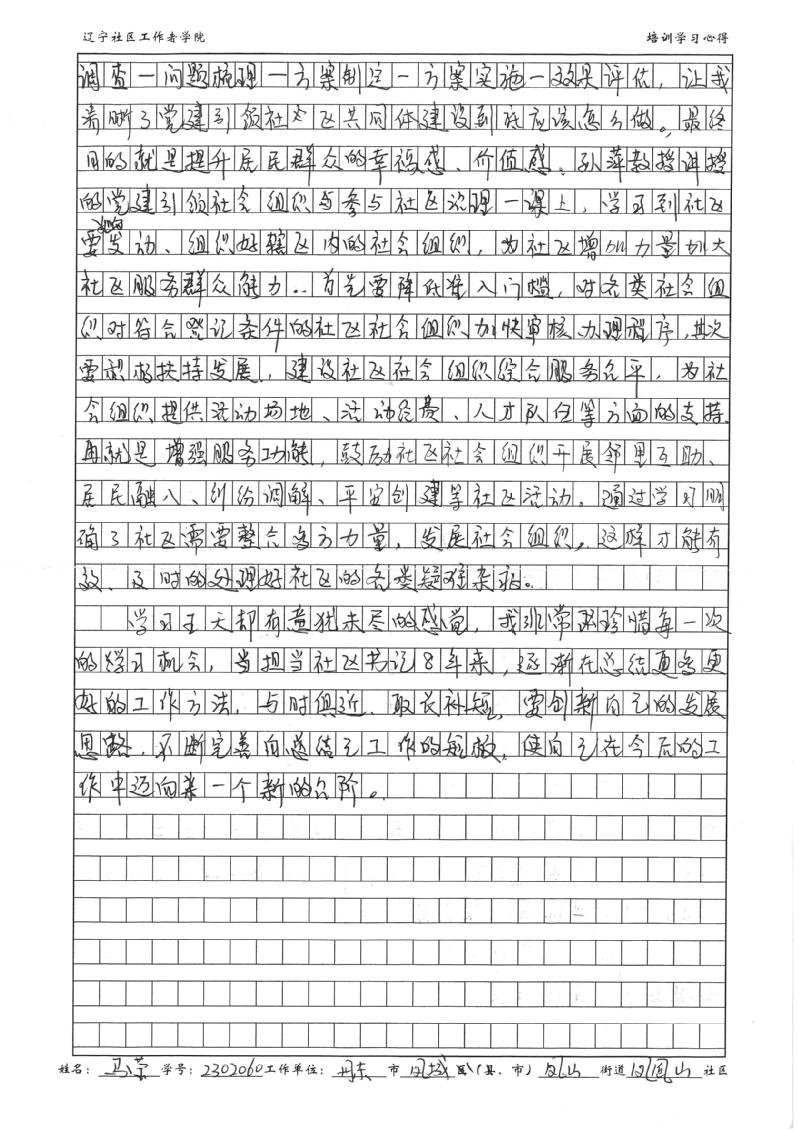 辽宁社区工作者学院 培训学习心得
调查一问题梳理一方案制定一方案实施一效果评估，让我
清晰了党建引领社区共同体建设到底应该怎么做。最终
目的就是提升居民群众的幸福感、价值感。孙萍教授讲授
的党建引领社会组织与参与社区治理一课上，学习到社区
要发动、组织好辖区内的社会组织，为社区增加力量加大
社区服务群众能力。首先要降低准入门槛，对各类社会组
织对符合登记条件的社区社会组织加快审核办理程序，其次
要积极扶持发展，建设社区社会组织综合服务平台，为社
会组织提供活动场地、活动经费、人才队伍等方面的支持
再就是增强服务功能，鼓励社区社会组织开展邻里互助、
居民融入、纠纷调解、平安创建等社区活动。通过学习明
确了社区需要整合多方力量，发展社会组织。这样才能有
效、及时的处理好社区的各类疑难杂症。
学习五天却有意犹未尽的感觉，我非常珍惜每一次
的学习机会，当担当社区书记8年来，逐渐在总结更多更
好的工作方法，与时俱近、取长补短，要创新自己的发展
思路，不断完善自己工作的短板，使自己在今后的工
作中迈向某一个新的台阶。
姓名：马萍 学号：2302060 工作单位：丹东 市 凤城 区（县、市）凤山 街道 凤凰山 社区